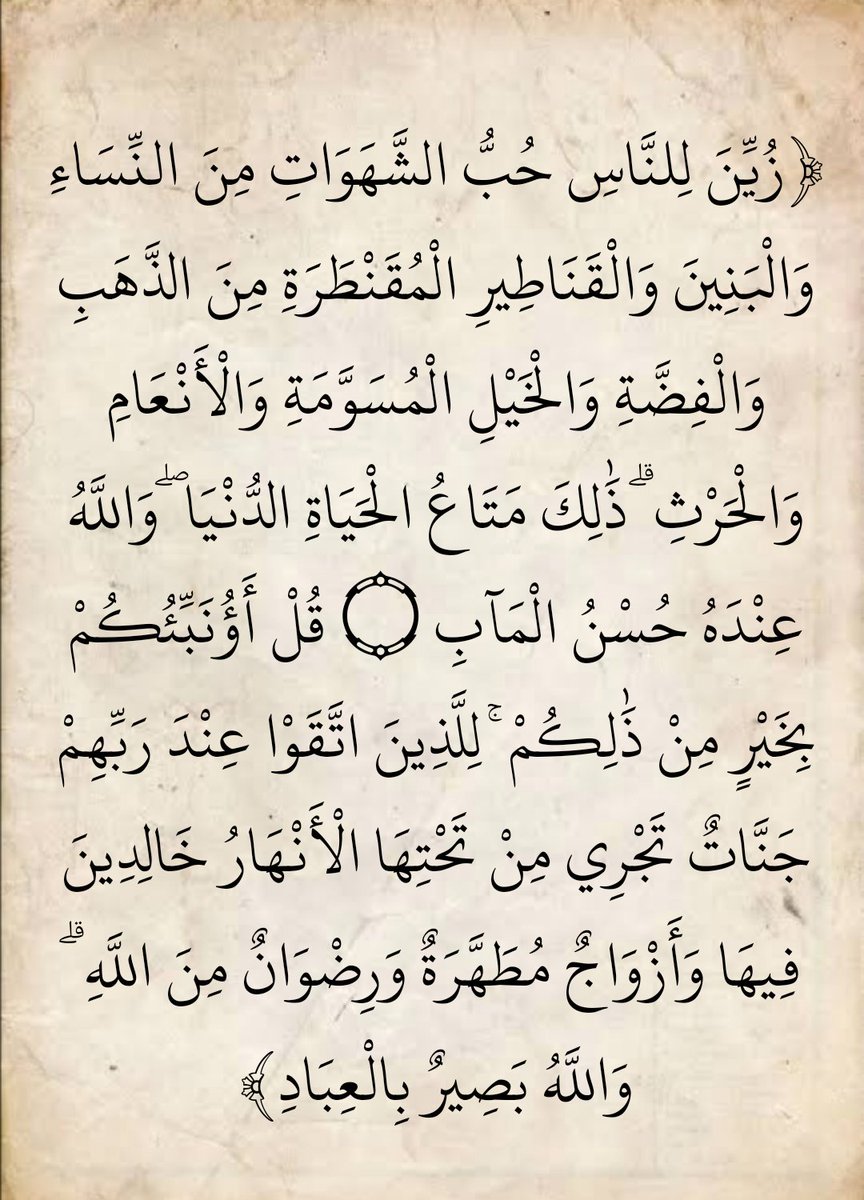 ﴿زُيِّنَ لِلنَّاسِ حُبُّ الشَّهَوَاتِ مِنَ النِّسَاءِ
وَالْبَنِينَ وَالْقَنَاطِيرِ الْمُقَنْطَرَةِ مِنَ الذَّهَبِ
وَالْفِضَّةِ وَالْخَيْلِ الْمُسَوَّمَةِ وَالْأَنْعَامِ
وَالْحَرْثِ ۗ ذَٰلِكَ مَتَاعُ الْحَيَاةِ الدُّنْيَا ۖ وَاللَّهُ
عِنْدَهُ حُسْنُ الْمَآبِ ۝ قُلْ أَؤُنَبِّئُكُمْ
بِخَيْرٍ مِنْ ذَٰلِكُمْ ۚ لِلَّذِينَ اتَّقَوْا عِنْدَ رَبِّهِمْ
جَنَّاتٌ تَجْرِي مِنْ تَحْتِهَا الْأَنْهَارُ خَالِدِينَ
فِيهَا وَأَزْوَاجٌ مُطَهَّرَةٌ وَرِضْوَانٌ مِنَ اللَّهِ ۗ
وَاللَّهُ بَصِيرٌ بِالْعِبَادِ﴾